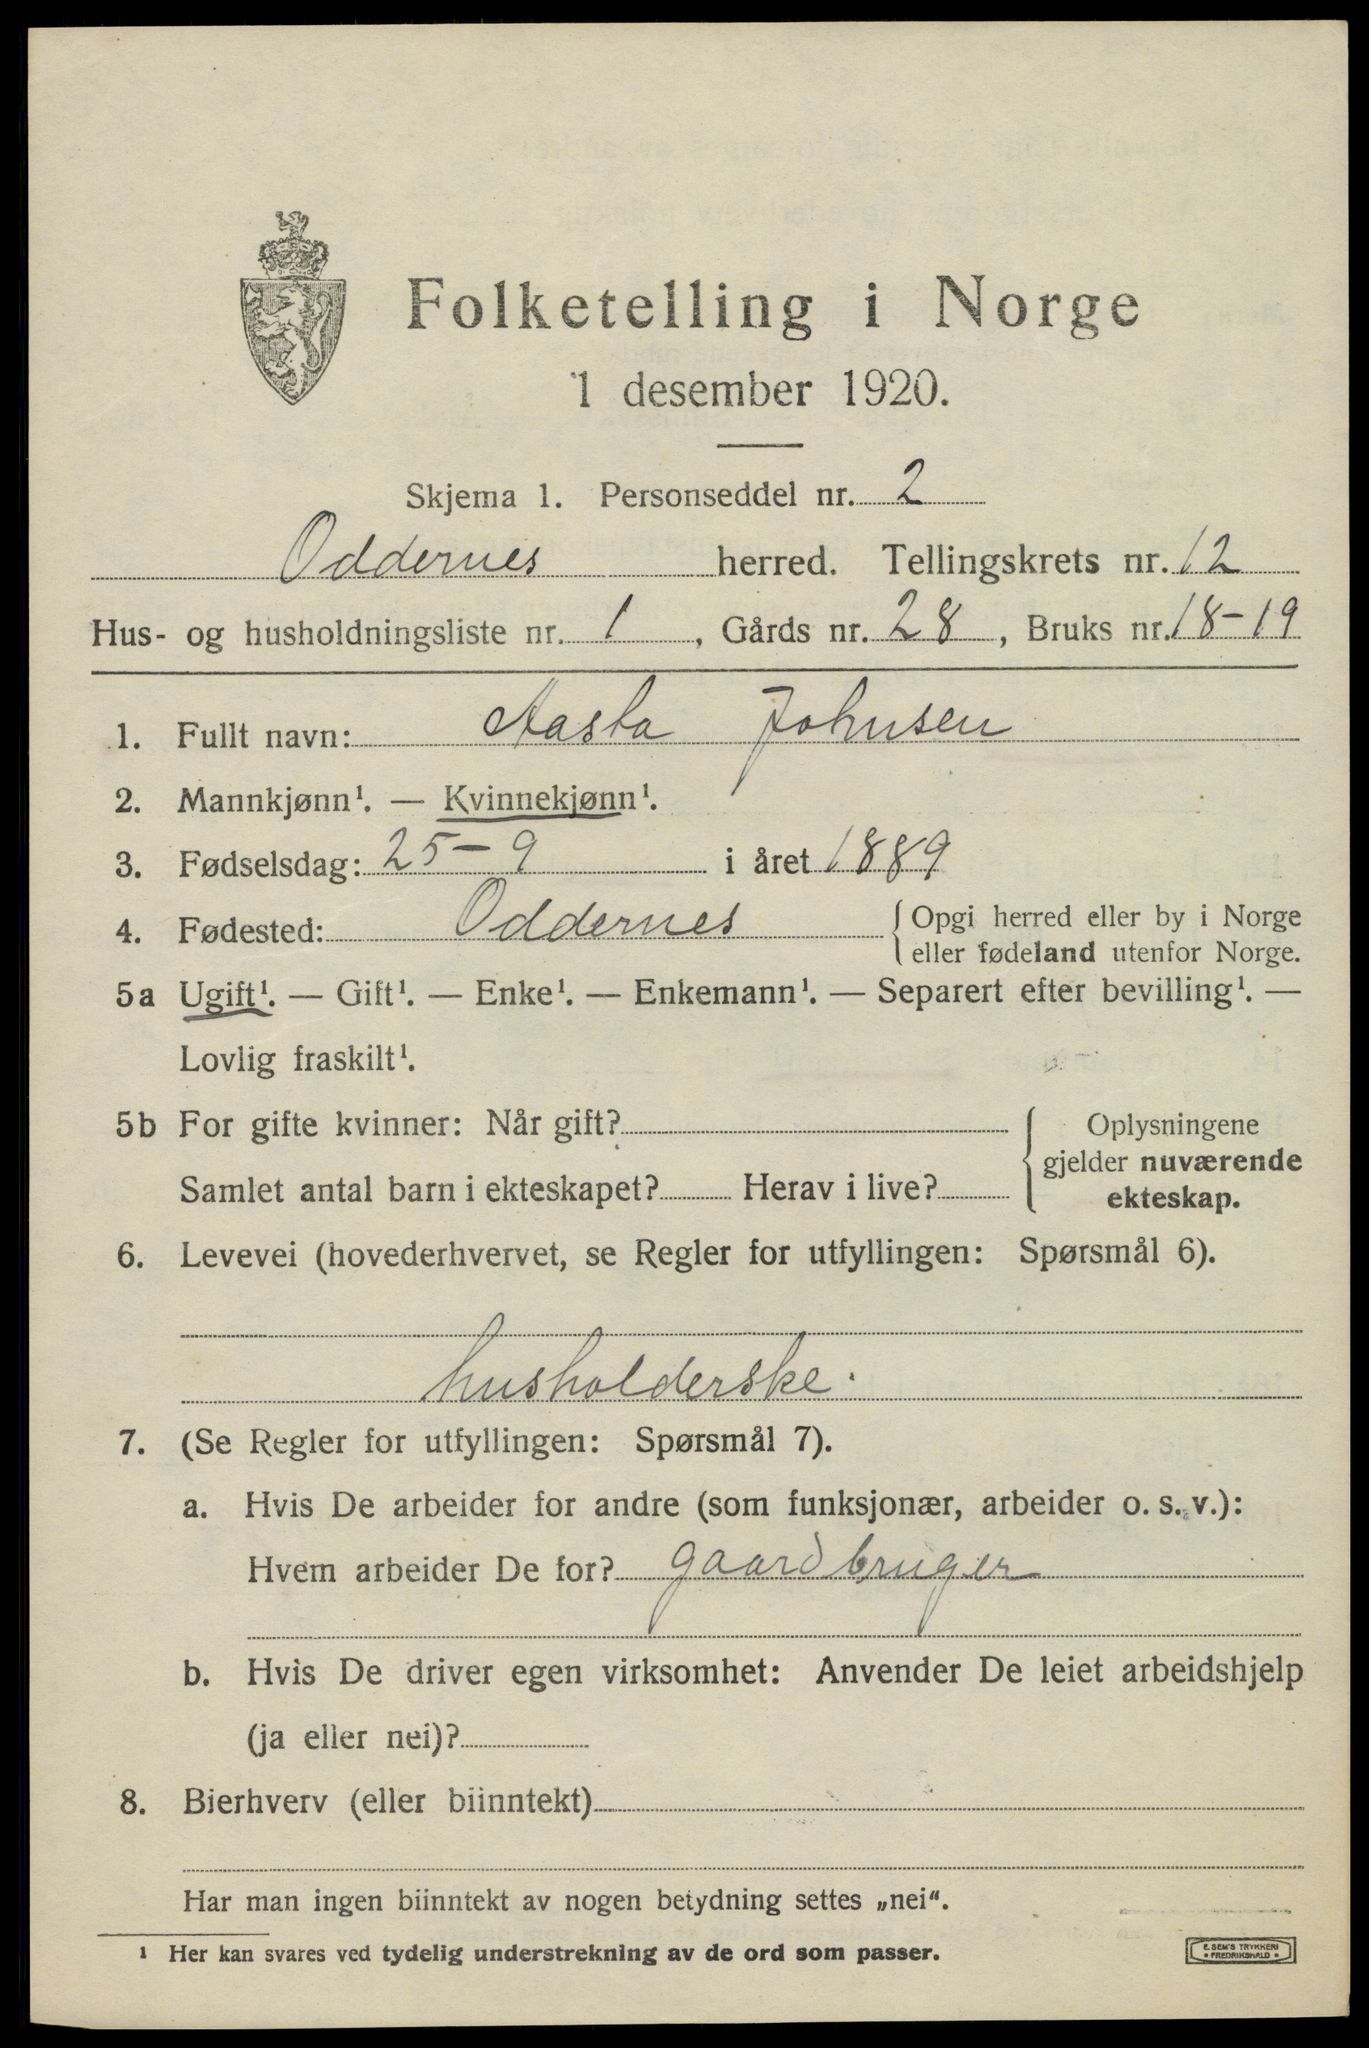 Folketelling i Norge
1 desember 1920.
Skjema 1. Personseddel nr. 2
Oddernes herred. Tellingskrets nr. 12
Hus- og husholdningsliste nr. 1, Gårds nr. 28, Bruks nr. 18-19
1. Fullt navn: Aasta Johnsen
2. Mannkjønn¹. — Kvinnekjønn¹.
3. Fødselsdag: 25-9 i året 1889
4. Fødested: Oddernes { Opgi herred eller by i Norge
eller fødeland utenfor Norge.
5a Ugift¹. — Gift¹. — Enke¹. — Enkemann¹. — Separert efter bevilling¹. —
Lovlig fraskilt¹.
5b For gifte kvinner: Når gift?
Samlet antal barn i ekteskapet? Herav i live?
Oplysningene
gjelder nuværende
ekteskap.
6. Levevei (hovederhvervet, se Regler for utfyllingen: Spørsmål 6).
husholderske.
7. (Se Regler for utfyllingen: Spørsmål 7).
a. Hvis De arbeider for andre (som funksjonær, arbeider o. s. v.):
Hvem arbeider De for? gaardbruger
b. Hvis De driver egen virksomhet: Anvender De leiet arbeidshjelp
(ja eller nei)?
8. Bierhverv (eller biinntekt)
Har man ingen biinntekt av nogen betydning settes „nei“.
¹ Her kan svares ved tydelig understrekning av de ord som passer.
E. SEM'S TRYKKERI
• FREDRIKSHALD •